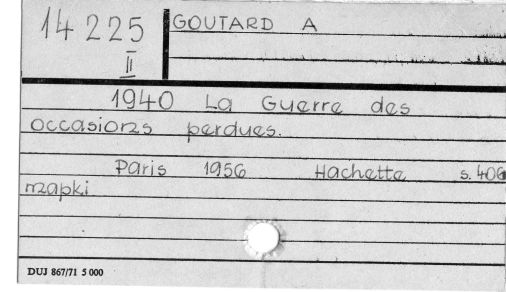 14 225
II
GOUTARD A
1940 La Guerre des
occasions perdues.
Paris 1956 Hachette s. 406
mapki
DUJ 867/71 5 000